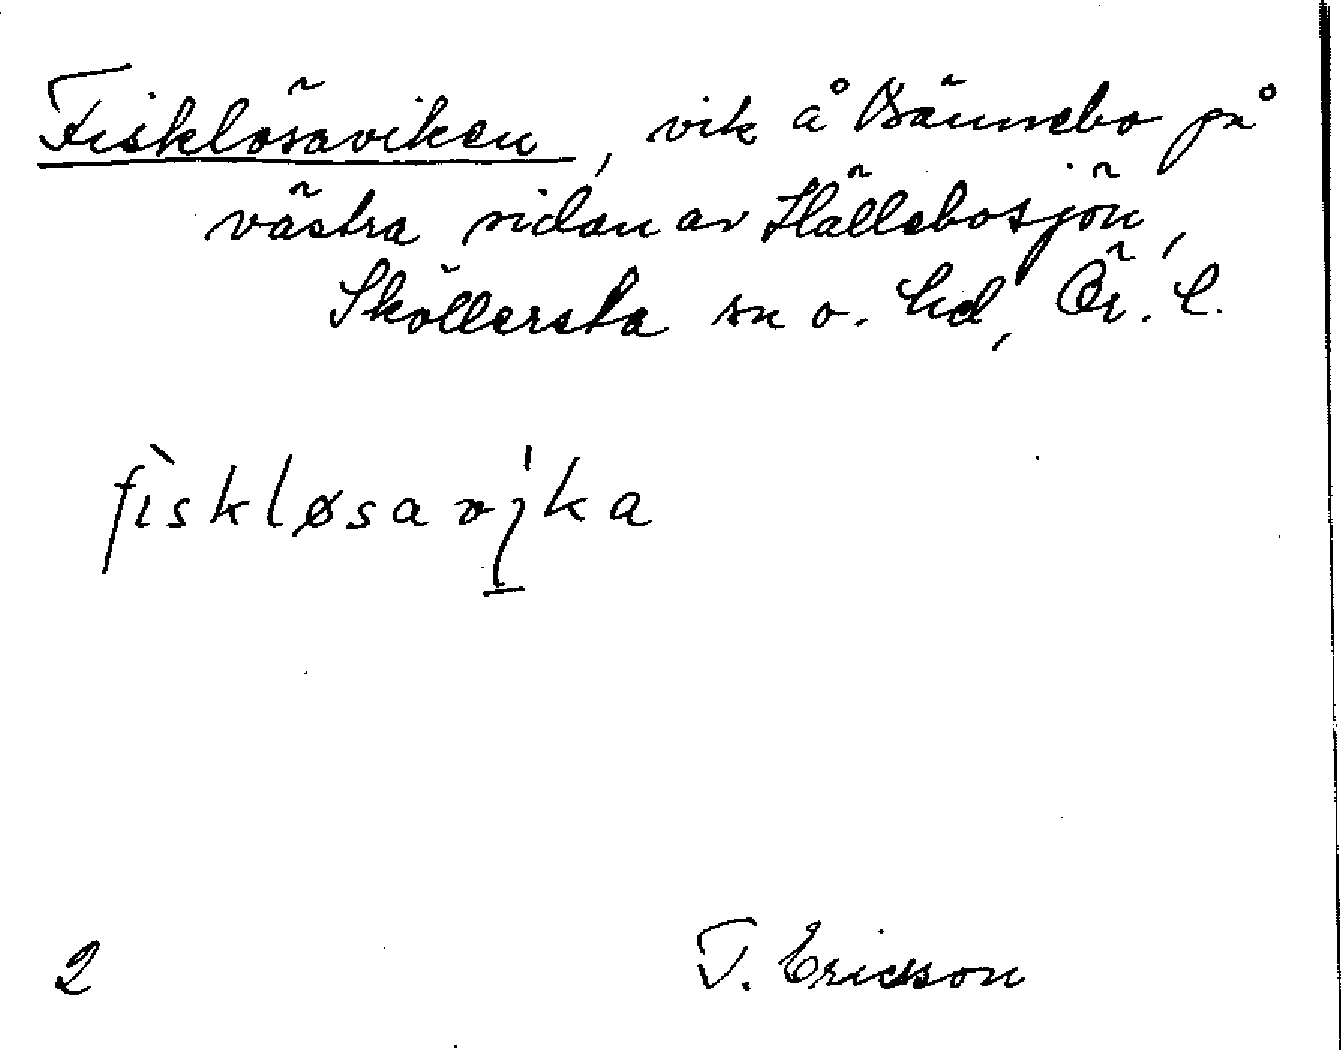 Fisklösaviken, vik å Bännebo på
västra sidan av Hällebosjön,
Sköllersta sn o. hd, Ör. l.
fìskløsavı̍ka
2
T. Ericson